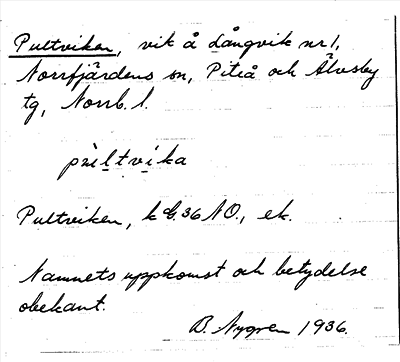 Pultviken, vik å Långvik nr 1,
Norrfjärdens sn, Piteå och Älvsby
tg, Norrb. l.
pùltvika
Pultviken, k G. 36 NO., ek.
Namnets uppkomst och betydelse
obekant.
B. Nygren 1936.